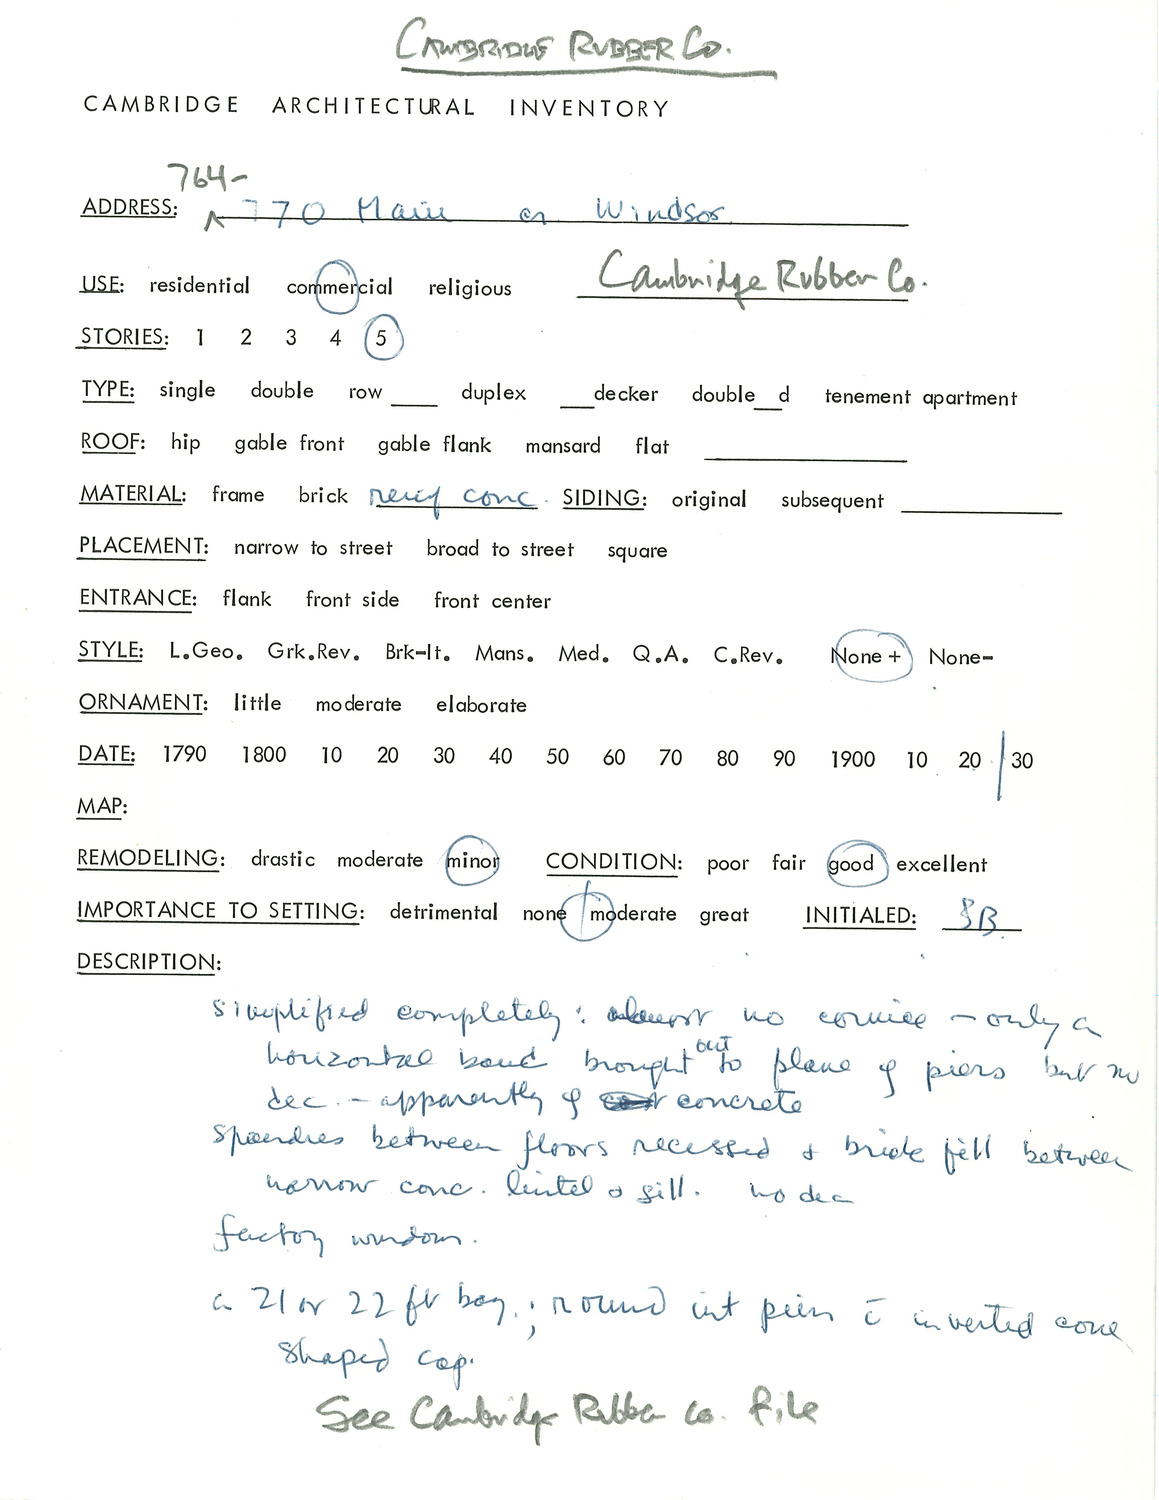 CAMBRIDGE RUBBER CO.
CAMBRIDGE ARCHITECTURAL INVENTORY
764-
ADDRESS: 770 Main on Windsor
USE: residential commercial religious Cambridge Rubber Co.
STORIES: 1 2 3 4 5
TYPE: single double row ___ duplex ___decker double__d tenement apartment
ROOF: hip gable front gable flank mansard flat
MATERIAL: frame brick reinf conc. SIDING: original subsequent
PLACEMENT: narrow to street broad to street square
ENTRANCE: flank front side front center
STYLE: L.Geo. Grk.Rev. Brk-It. Mans. Med. Q.A. C.Rev. None + None-
ORNAMENT: little moderate elaborate
DATE: 1790 1800 10 20 30 40 50 60 70 80 90 1900 10 20 / 30
MAP:
REMODELING: drastic moderate minor CONDITION: poor fair good excellent
IMPORTANCE TO SETTING: detrimental none moderate great INITIALED: SB
DESCRIPTION:
simplified completely: almost no cornice - only a
horizontal band brought out to plane of piers but no
dec. - apparently of concrete
Spandres between floors recessed + brick fill between
narrow conc. lintel + sill. no dec
factory windows.
a 21 or 22 ft bay.; round int piers c̄ inverted cone
shaped cap.
See Cambridge Rubber Co. file